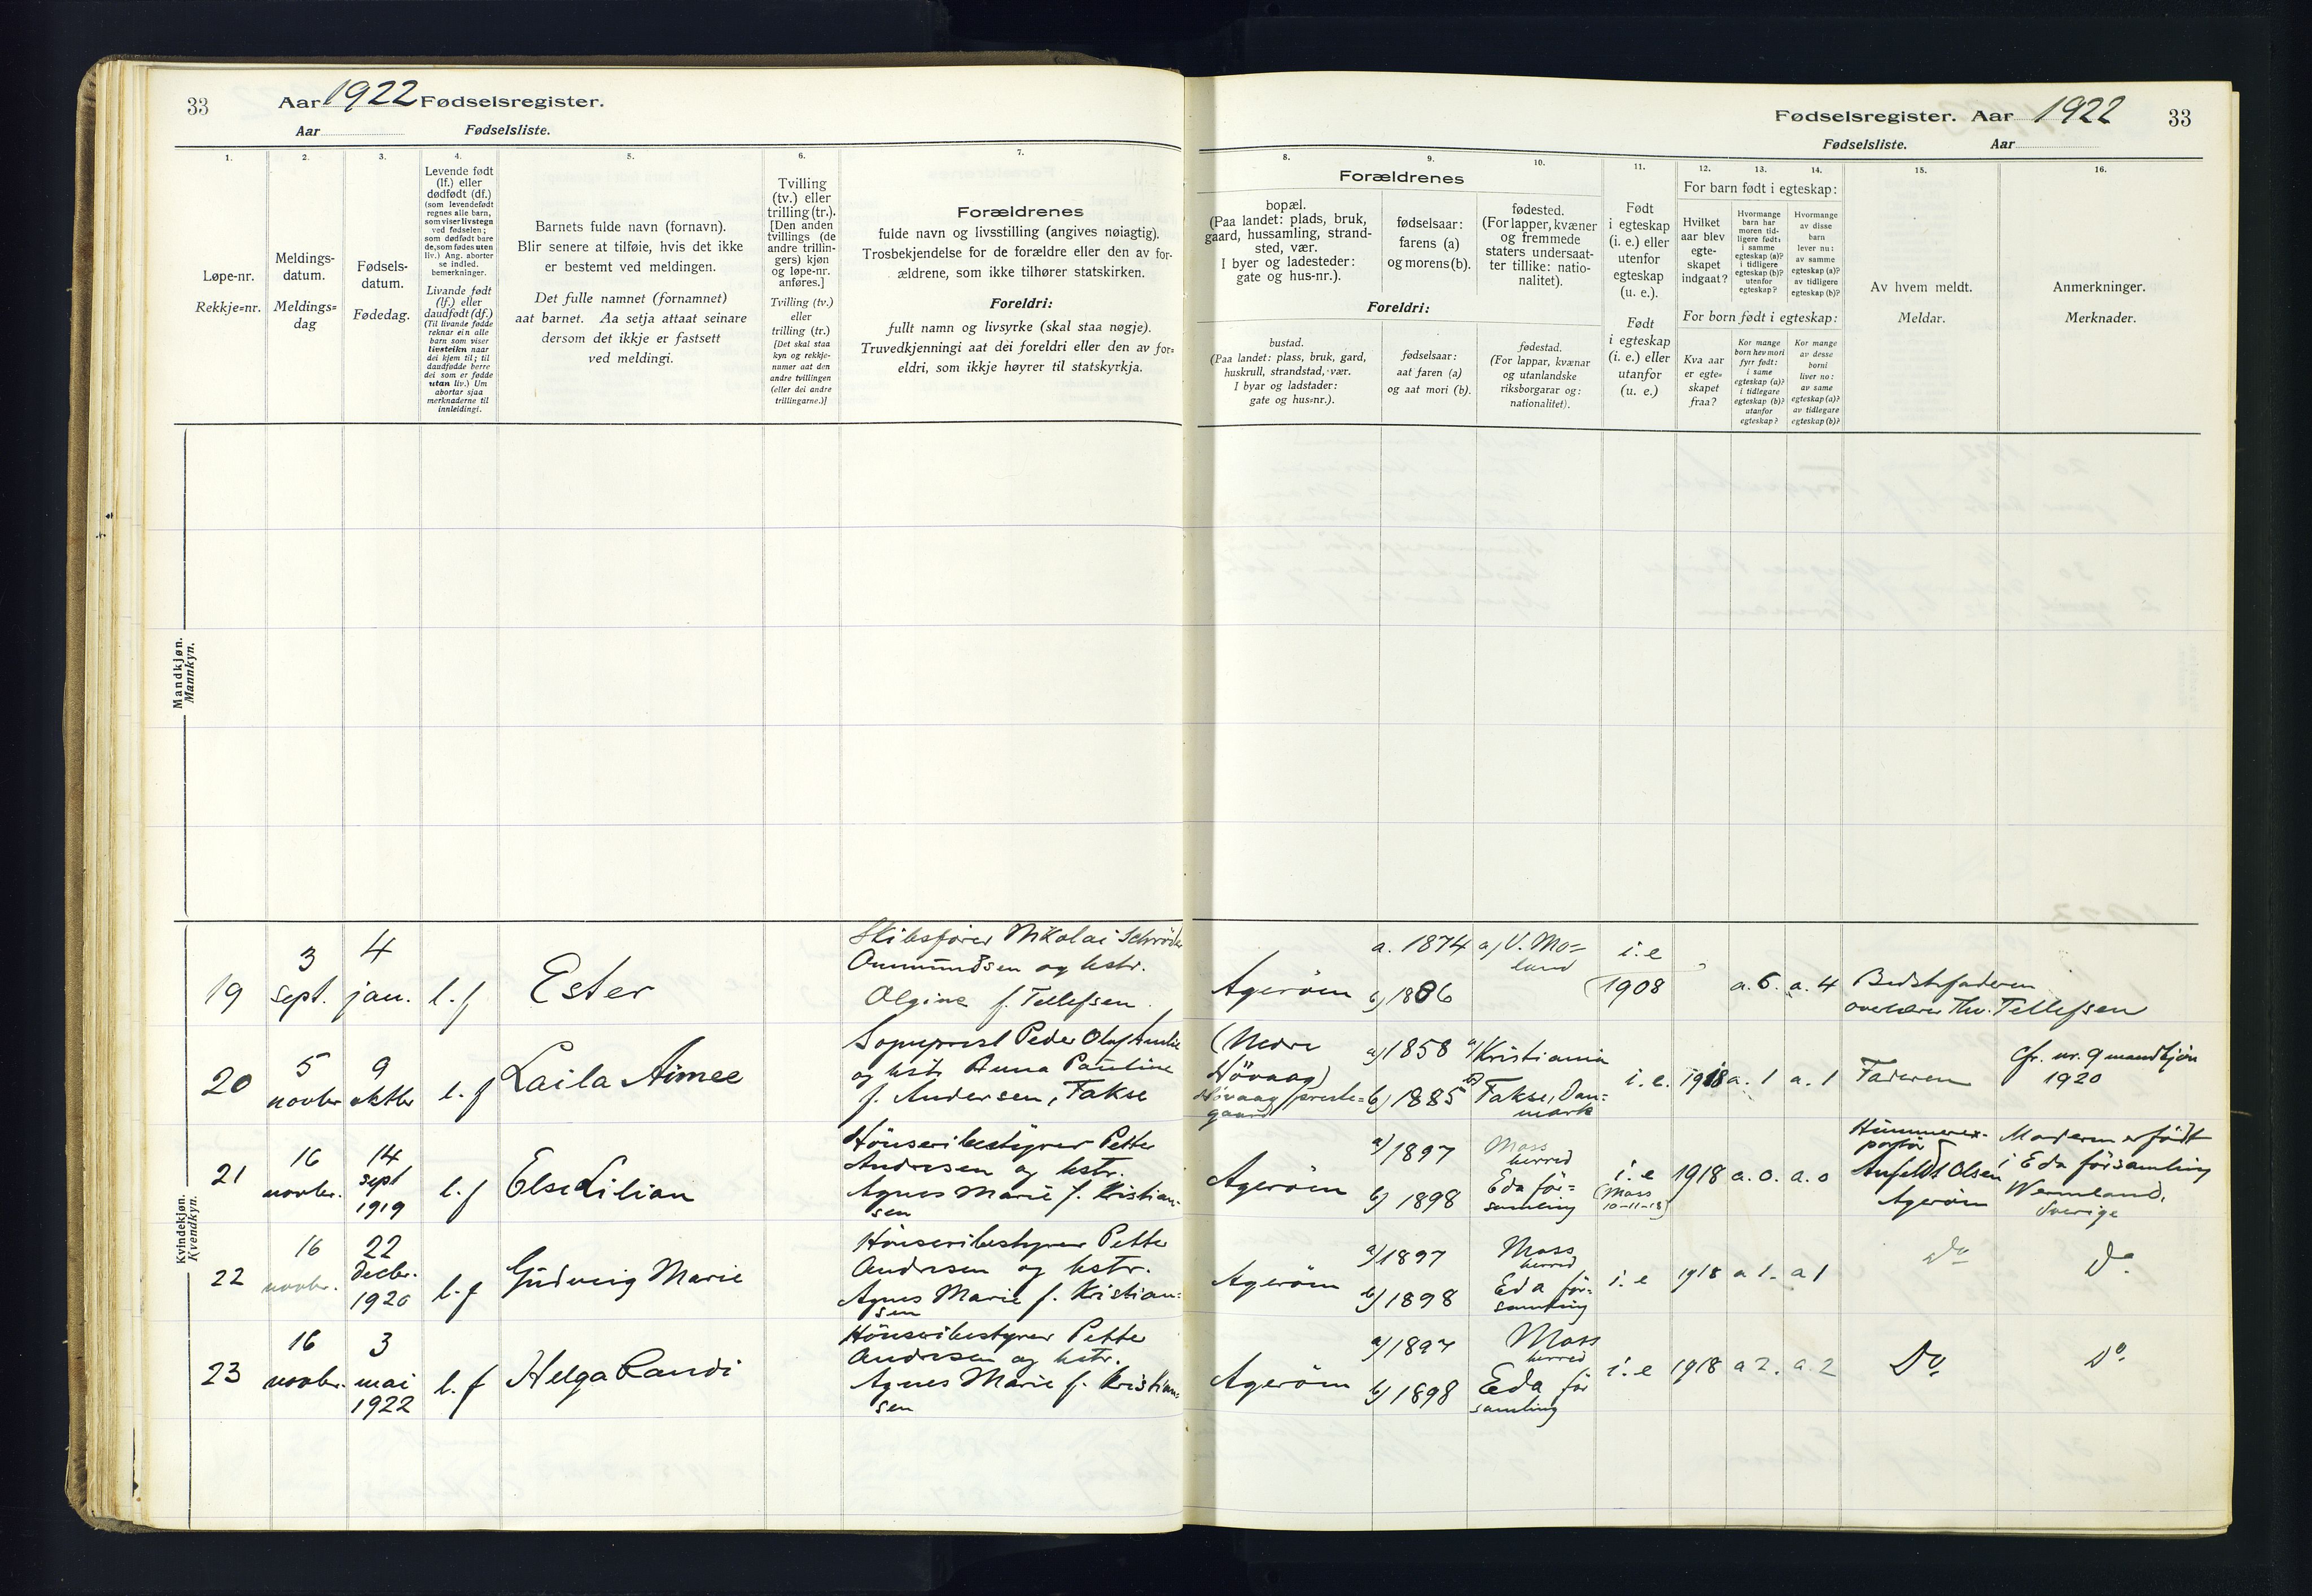 33
Aar 1922 Fødselsregister.
Aar Fødselsliste.
1.
2.
3.
4.
5.
6.
7.
Løpe-nr.
Rekkje=nr.
Meldings-
datum.
Meldings=
dag
Fødsels-
datum.
Fødedag.
Levende født
(lf.) eller
dødfødt (df.)
(som levendefødt
regnes alle barn,
som viser livstegn
ved fødselen;
som dødfødt bare
de, som fødes uten
liv.) Ang. aborter
se indled.
bemerkninger.
Livande født
(lf.) eller
daudfødt (df.)
(Til livande fødde
reknar ein alle
barn som viser
livsteikn naar
dei kjem til; til
daudfødde berre
dei som er fødde
utan liv.) Um
abortar sjaa
merknaderne til
innleidingi.
Barnets fulde navn (fornavn).
Blir senere at tilføie, hvis det ikke
er bestemt ved meldingen.
Det fulle namnet (fornamnet)
aat barnet. Aa setja attaat seinare
dersom det ikkje er fastsett
ved meldingi.
Tvilling
(tv.) eller
trilling (tr.).
[Den anden
tvillings (de
andre trillin-
gers) kjøn
og løpe-nr.
anføres.]
Tvilling (tv.)
eller
trilling (tr.)
[Det skal staa
kyn og rekkje-
numer aat den
andre tvillingen
(eller dei andre
trillingarne.)]
Forældrenes
fulde navn og livsstilling (angives nøiagtig).
Trosbekjendelse for de forældre eller den av for-
ældrene, som ikke tilhører statskirken.
Foreldri:
fullt namn og livsyrke (skal staa nøgje).
Truvedkjenningi aat dei foreldri eller den av for=
eldri, som ikkje høyrer til statskyrkja.
Mandkjøn.
Mannkyn.
Kvindekjøn.
Kvendkyn.
Fødselsregister. Aar 1922 33
Fødselsliste. Aar
8.
9.
10.
11.
12.
13.
14.
15.
16.
Forældrenes
bopæl.
(Paa landet: plads, bruk,
gaard, hussamling, strand-
sted, vær.
I byer og ladesteder:
gate og hus-nr.).
fødselsaar:
farens (a)
og morens (b).
fødested.
(For lapper, kvæner
og fremmede
staters undersaat-
ter tillike: natio-
nalitet).
Foreldri:
bustad.
(Paa landet: plass, bruk, gard,
huskrull, strandstad, vær.
I byar og ladstader:
gate og hus=nr.).
fødselsaar:
aat faren (a)
og aat mori (b).
fødestad.
(For lappar, kvænar
og utanlandske
riksborgarar og:
nationalitet).
Født
i egteskap
(i. e.) eller
utenfor
egteskap
(u. e.).
Født
i egteskap
(i. e.) eller
utanfor
(u. e.)
For barn født i egteskap:
Hvilket
aar blev
egte-
skapet
indgaat?
Hvormange
barn har
moren tid-
ligere født:
i samme
egteskap (a)?
i tidligere
egteskap (b)?
utenfor
egteskap?
Hvormange
av disse
barn
lever nu:
av samme
egteskap (a)?
av tidligere
egteskap (b)?
For born født i egteskap:
Kva aar
er egte=
skapet
fraa?
Kor mange
born hev mori
fyrr født:
i same
egteskap (a)?
i tidlegare
egteskap (b)?
utanfor
egteskap?
Kor mange
av desse
borni
liver no:
av same
egteskap (a)?
av tidlegare
egteskap (b)?
Av hvem meldt.
Meldar.
Anmerkninger.
Merknader.
19
3
sept.
4
jan.
l. f
Ester
Skibsfører Nikolai Schrøder
Ommundsen og hstr.
Olgine f. Tellefsen
Agerøen
a. 1874
b) 1886
a) V. Mo=
land
i. e
(1908
a. 6. a. 4
Bedstefaderen
overlærer Th. Tellefsen
20
5
novbr
9
oktbr
l. f
Laila Aimee
Sogneprest Peder Olaf Aulie
og hstr Anna Pauline
f. Andersen, Fakse
(Nedre
Høvaag)
Høvaag preste=
gaard
a) 1858
b) 1885
a) Kristiania
b) Fakse, Dan=
mark
i. e. 1918 a. 1 a. 1
Faderen
Cfr. nr. 9 mandkjøn
1920
21
16
novbr.
14
sept
1919
l. f
Else Lilian
Hønseribestyrer Petter
Andresen og hstr.
Agnes Marie f. Kristian-
sen
Agerøen
a) 1897
b) 1898
Moss
herred
Eda för=
samling
i. e
(Moss
10-11-18)
1918 a. 0. a. 0
Hummerex-
portør
Anfeldt Olsen
Agerøen
Moderen er født
i Eda församling
Wermland,
Sverige
22
16
novbr.
22
decbr.
1920
l. f
Gudveig Marie
Hønseribestyrer Petter
Andresen og hstr.
Agnes Marie f. Kristian=
sen
Agerøen
a) 1897
b) 1898
Moss
herred
Eda för-
samling
i. e 1918 a 1. a 1
Do
Do.
23
16
novbr.
3
mai
1922
l. f
Helga Randi
Hønseribestyrer Petter
Andresen og hstr.
Agnes Marie f. Kristian=
sen
Agerøen
a) 1897
b) 1898
Moss
herred
Eda för
samling
i. e 1918 a 2. a. 2
Do.
Do.